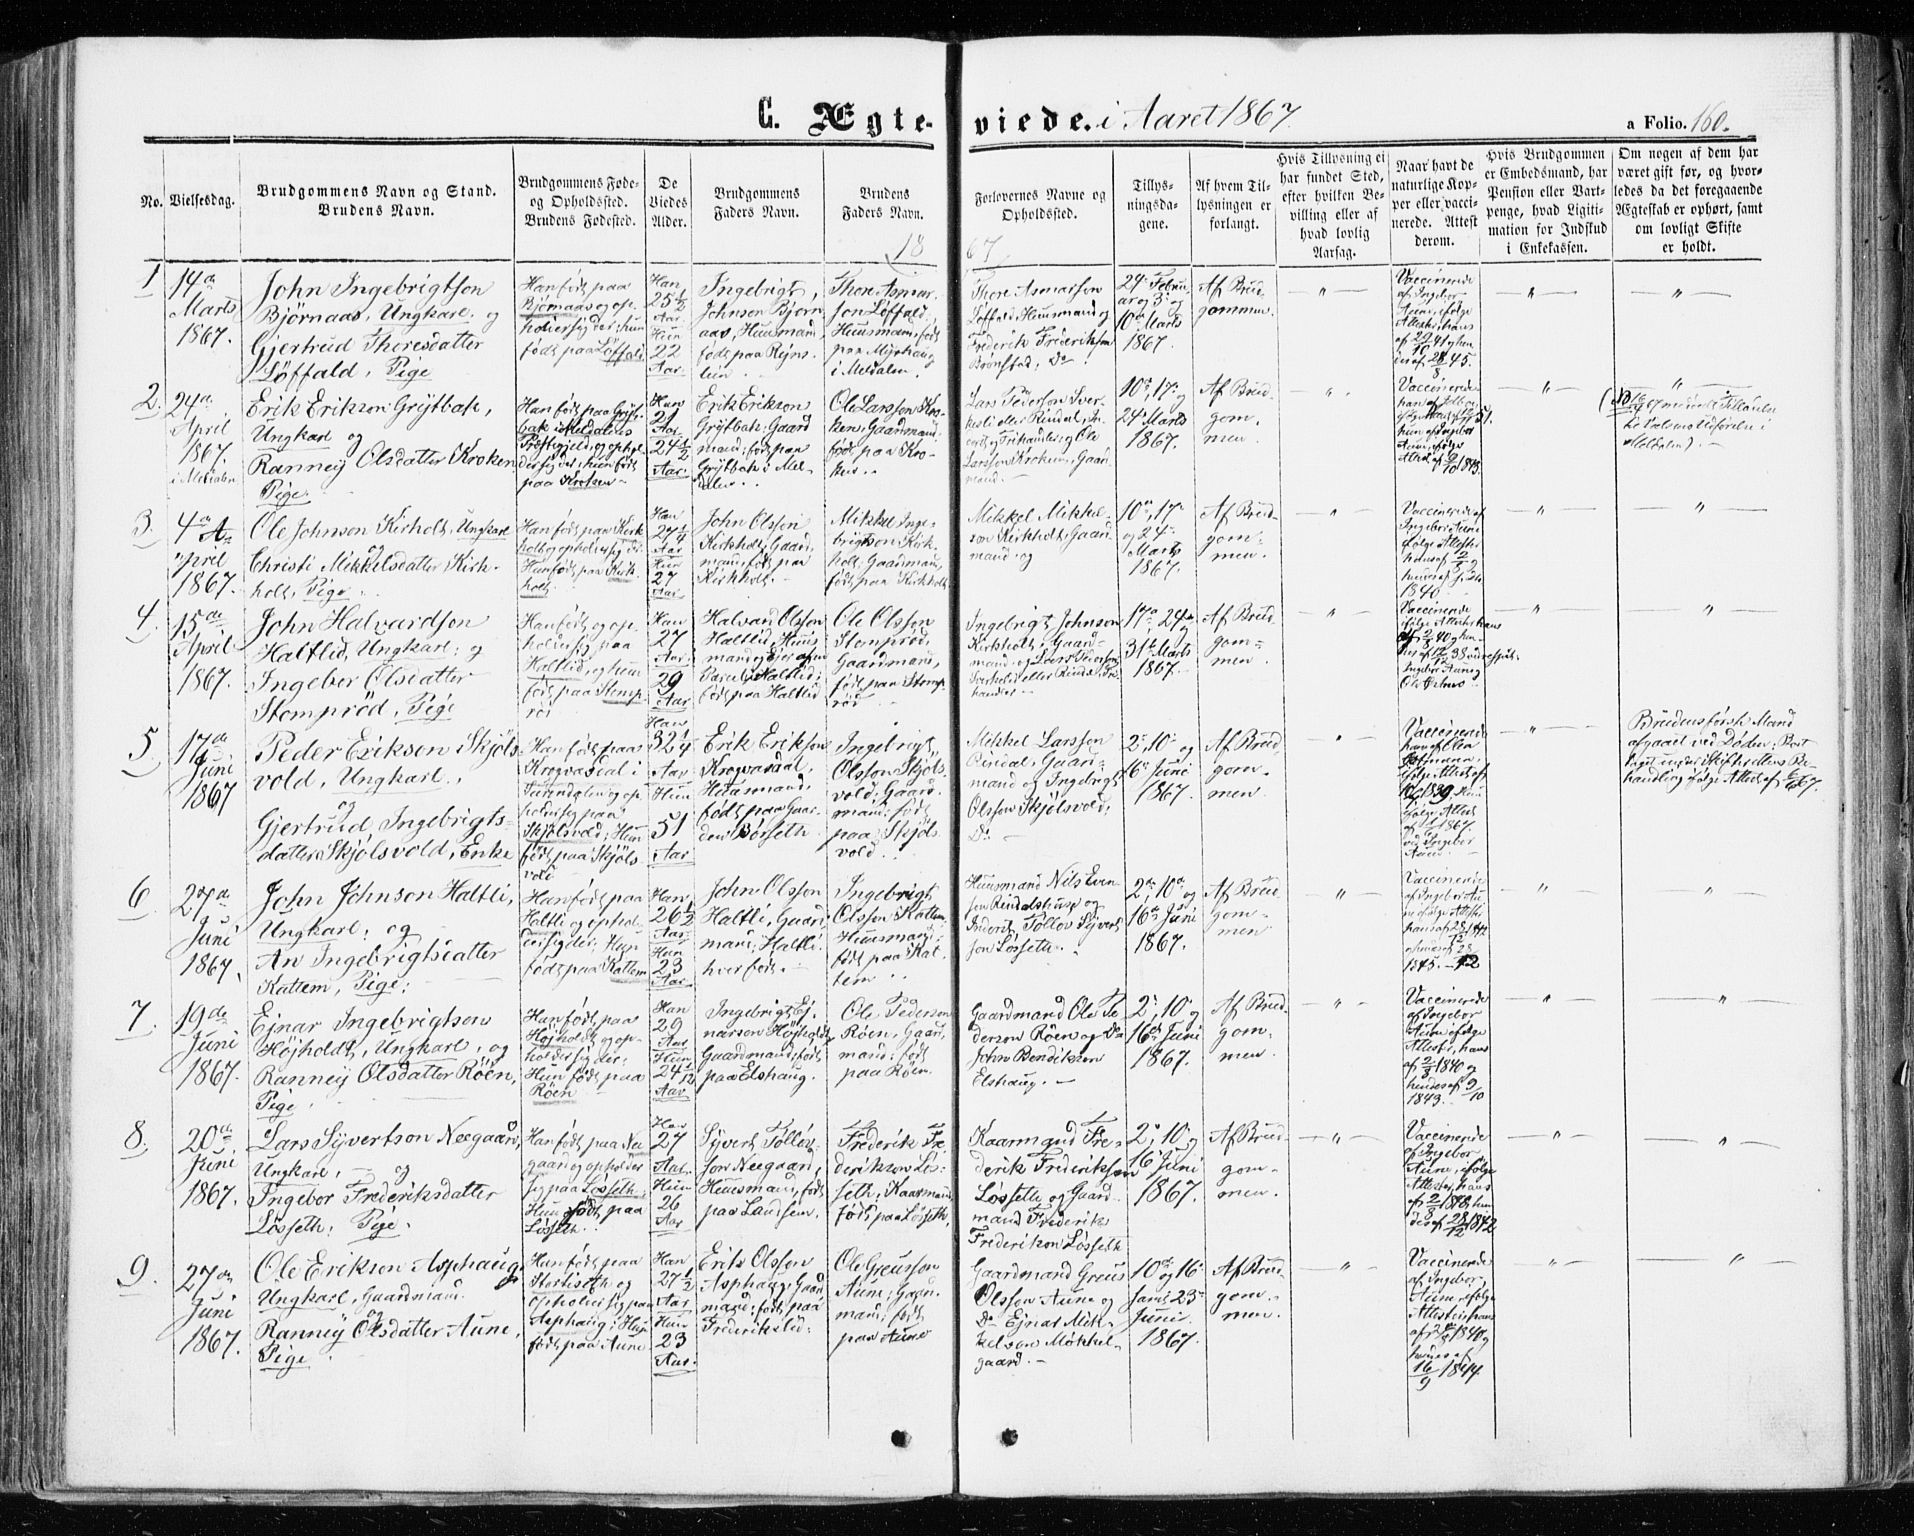 C. Ægte-viede. i Aaret 1867
a Folio. 160.
No.
Vielsesdag.
Brudgommens Navn og Stand.
Brudens Navn.
Brudgommens Føde-
og Opholdssted.
Brudens Fødested.
De
Viedes
Alder.
Brudgommens
Faders Navn.
Brudens
Faders Navn.
Forlovernes Navne og
Opholdssted.
Tillys-
ningsda-
gene.
Af hvem Til-
lysningen er
forlangt.
Hvis Tillysning ei
har fundet Sted,
efter hvilken Be-
villing eller af
hvad lovlig
Aarsag.
Naar havt de
naturlige Kop-
per eller vacci-
nerede. Attest
derom.
Hvis Brudgommen
er Embedsmand, har
Pension eller Vart-
penge, hvad Ligiti-
mation for Indskud
i Enkekassen.
Om nogen af dem har
været gift før, og hvor-
ledes da det foregaaende
Ægteskab er ophørt, samt
om lovligt Skifte
er holdt.
1867
1
14de
Marts
1867.
John Ingebrigtson
Bjørnaas, Ungkarl. og
Gjertrud Thoresdatter
Løffald, Pige
Han født paa
Bjørnaas og op-
holder sig der; hun
født paa Løffald
Han
25½
Aar
Hun
22
Aar.
Ingebrigt
Johnson Bjørn-
aas, Huusmand,
født paa Rejns-
lien.
Thore Asmar-
son Løffald,
Huusmand, født
paa Myrhaug
i Meldalen.
Thore Asmarson
Løffald, Huusmand og
Frederik Frederikson
Brønstad, Do
24de Febru-
ar og 3de og
10de Marts
1867.
Af Brud-
gommen.
Vaccinerede
af Ingebor
Aune, ifølge
2.
24de
April
1867.
i Meldalen
Erik Erikson Grytbak,
Ungkarl og
Ranney Olsdatter Kroken
Pige.
Han født paa Gryt-
bak i Meldalens
Præstegjeld, og ophol-
der sig der; hun født
paa Kroken
Han
21
Aar
24½
Aar.
Erik Erikson
Grytbak, Gaard-
mand; født paa
Grytbak i Mel-
dalen.
Ole Larsson Kro-
ken, Gaardmand,
født paa Kro-
ken.
Lars Pederson Sver-
keli eller Rindal,
Larsson Kroken, Gaard-
mand.
10de, 17de og
24de Marts
1867.
Af Brud-
gom-
men.
Vaccinerede
3.
4de A-
pril
1867.
Ole Johnson Kirkholt, Ungkarl
og
Christi Mikkelsdatter Kirk-
holt, Pige.
Han født paa Kirk-
holt og opholder sig der
Hun født paa Kirk-
holt.
Han
27¼
Aar
Hun
27
Aar.
John Olsson
Kirkholt; Gaard-
mand; født paa
Kirkholt.
Mikkel Inge-
brigtson Kirk-
holt, Gaardmand,
født paa Kirkholt
Mikkel Mikkel-
son Kirkholt, Gaard-
mand og
10de, 17de
og 24de
Marts
1867.
Af Brud-
gom-
men.
Vaccinerede af
Ingebor Aune
ifølge Attester
1840
4.
15de
April
1867.
John Halvardson
Haltlid, Ungkarl; og
Ingeber Olsdatter
Stomprød, Pige
Han født og op-
holder sig paa
Haltlid, og hun
født paa Stomp-
rød
Han
27
Aar
29
Aar
Halvard Olsson
Haltlid, Huus-
mand og Ejer af en
Parcel i Haltlid;
født paa Haltlid
Ole Olsson
Stomprød,
Gaardmand,
født paa Stomp-
rød
Ingebrigt Johnson
Kirkholt, Gaard-
mand og Lars Pederson
17de, 24de og
31te Marts
1867.
Af Brud-
gom-
men.
Vaccinerede
5
17de
Juni
1867
Peder Erikson Skjøls-
vold, Ungkarl.
og
Gjertrud Ingebrigts-
datter Skjølsvold, Enke
Han født paa
Krogvasdal i
Surendalen og op-
holder sig paa
Skjølsvold; Hun
født paa Skjøls-
vold
Han
32¼
Aar
Hun
51
Aar
Erik Erikson
Krogvasdal,
Huusmand,
født paa Gaar-
den Børseth.
Ingebrigt
Olsson Skjøls-
vold; Gaard-
mand; født
paa Skjøls-
vold.
Mikkel Larsson
Rindal, Gaard-
mand og Ingebrigt
Olsson Skjølsvold,
Do
2de, 10de og
16de Juni
1867.
Af Brud-
gom-
men.
Vaccinerede
Brudens første Mand
afgaaet ved Døden; Boet
taget under Skifterettens Be-
handling ifølge Attest af
6
27de
Juni
1867.
John Johnson Haltli,
Ungkarl; og
An Ingebrigtsdatter
Kattem, Pige;
Han født paa
Haltli og ophol-
der sig der; Hun
født paa Kattem
Han
26½
Aar
Hun
23
Aar
John Olsson
Haltli, Gaard-
mand, Haltli
hver født.
Ingebrigt
Olsson Kattem
Huusmand;
født paa Kat-
tem
Huusmand Nils Even-
son Rindalshusp og
Inderst Tolløv Syverts-
son Løsseth.
2de, 10de og
16de Juni
1867.
Af Brud-
gom-
men
Vaccinerede
7.
19de
Juni
1867.
Ejnar Ingebrigtson
Højholdt, Ungkarl, og
Ranney Olsdatter Røen,
Pige
Han født paa
Højholdt og op-
holder sig der;
Hun født paa
Røen
Han
29
Aar
Hun
24 1/12
Aar
Ingebrigt Ej-
narson Højholdt,
Gaardmand; født
paa Elshaug.
Ole Pederson
Røen, Gaard-
mand; født
paa Røen.
Gaardmand Ole Pe-
derson Røen og Do
John Bendikson
Elshaug.
2de, 10de og
16de Juni
1867.
Af Brud-
gom-
men.
Vaccinerede
af Ingebor
Aune ifølge
Attester, hans
af 2/8 1840 og
hendes af 9/10
1843.
8.
20de
Juni
1867.
Lars Syvertson Neegaard,
Ungkarl, og
Ingebor Frederiksdatter
Løsseth; Pige.
Han født paa Nee-
gaard og opholder
sig paa Løsseth;
Hun født paa
Løsseth.
Han
27
Aar.
Hun
26
Aar
Syvert Tolløv-
son Neegaard,
Huusmand, født
paa Landsem.
Frederik Fre-
derikson Løs-
seth; Kaarmand
født paa Løsseth.
Kaarmand Fre-
derik Frederikson
Løsseth og Gaard-
mand Frederik
Frederikson Løsseth
2de, 10de og
16de Juni
1867.
Af Brud-
gom-
men.
Vaccinerede
af Ingebor
Aune, ifølge
Attester, hans
9.
27de
Juni
1867.
Ole Erikson Asphaug
Ungkarl, Gaardmand.
og
Ranney Olsdatter Aune,
Pige
Han født paa
Stortiseth og
opholder sig paa
Asphaug; Hun
født paa Aune
Han
27½
Aar
Hun
23
Aar.
Erik Olsson
Asphaug; Gaard-
mand; født paa
Frederikslid;
Ole Greusson
Aune; Gaard-
mand; født
paa Aune
Gaardmand Greus
Olsson Aune og
Do Ejnar Mik-
kelson Møkkel-
gaard.
10de og 16de
samt 23de
Juni
1867.
Af Brud-
gom-
men.
Vaccinerede
af Ingebor
Aune, ifølge
Attester, hans
hendes af
16/9 1844